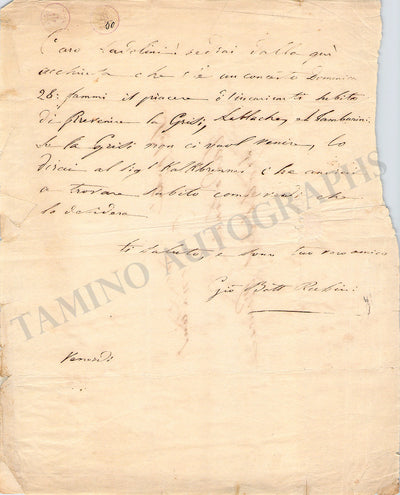 50
Caro Tadolini! vedrai dalla quì
acchiusa che c'è un concerto Domenica
28: fammi il piacere d'incaricarti subito
di prevenire la Grisi, Lablache, e Tamburini.
Se la Grisi non ci vuol venire, lo
dirai al Sigr Kalkbrenner che andrà
a trovare subito come vedi che
lo desidera
ti saluto e sono tuo vero amico
Gio Batt Rubini
Venerdì
TAMINO AUTOGRAPHS